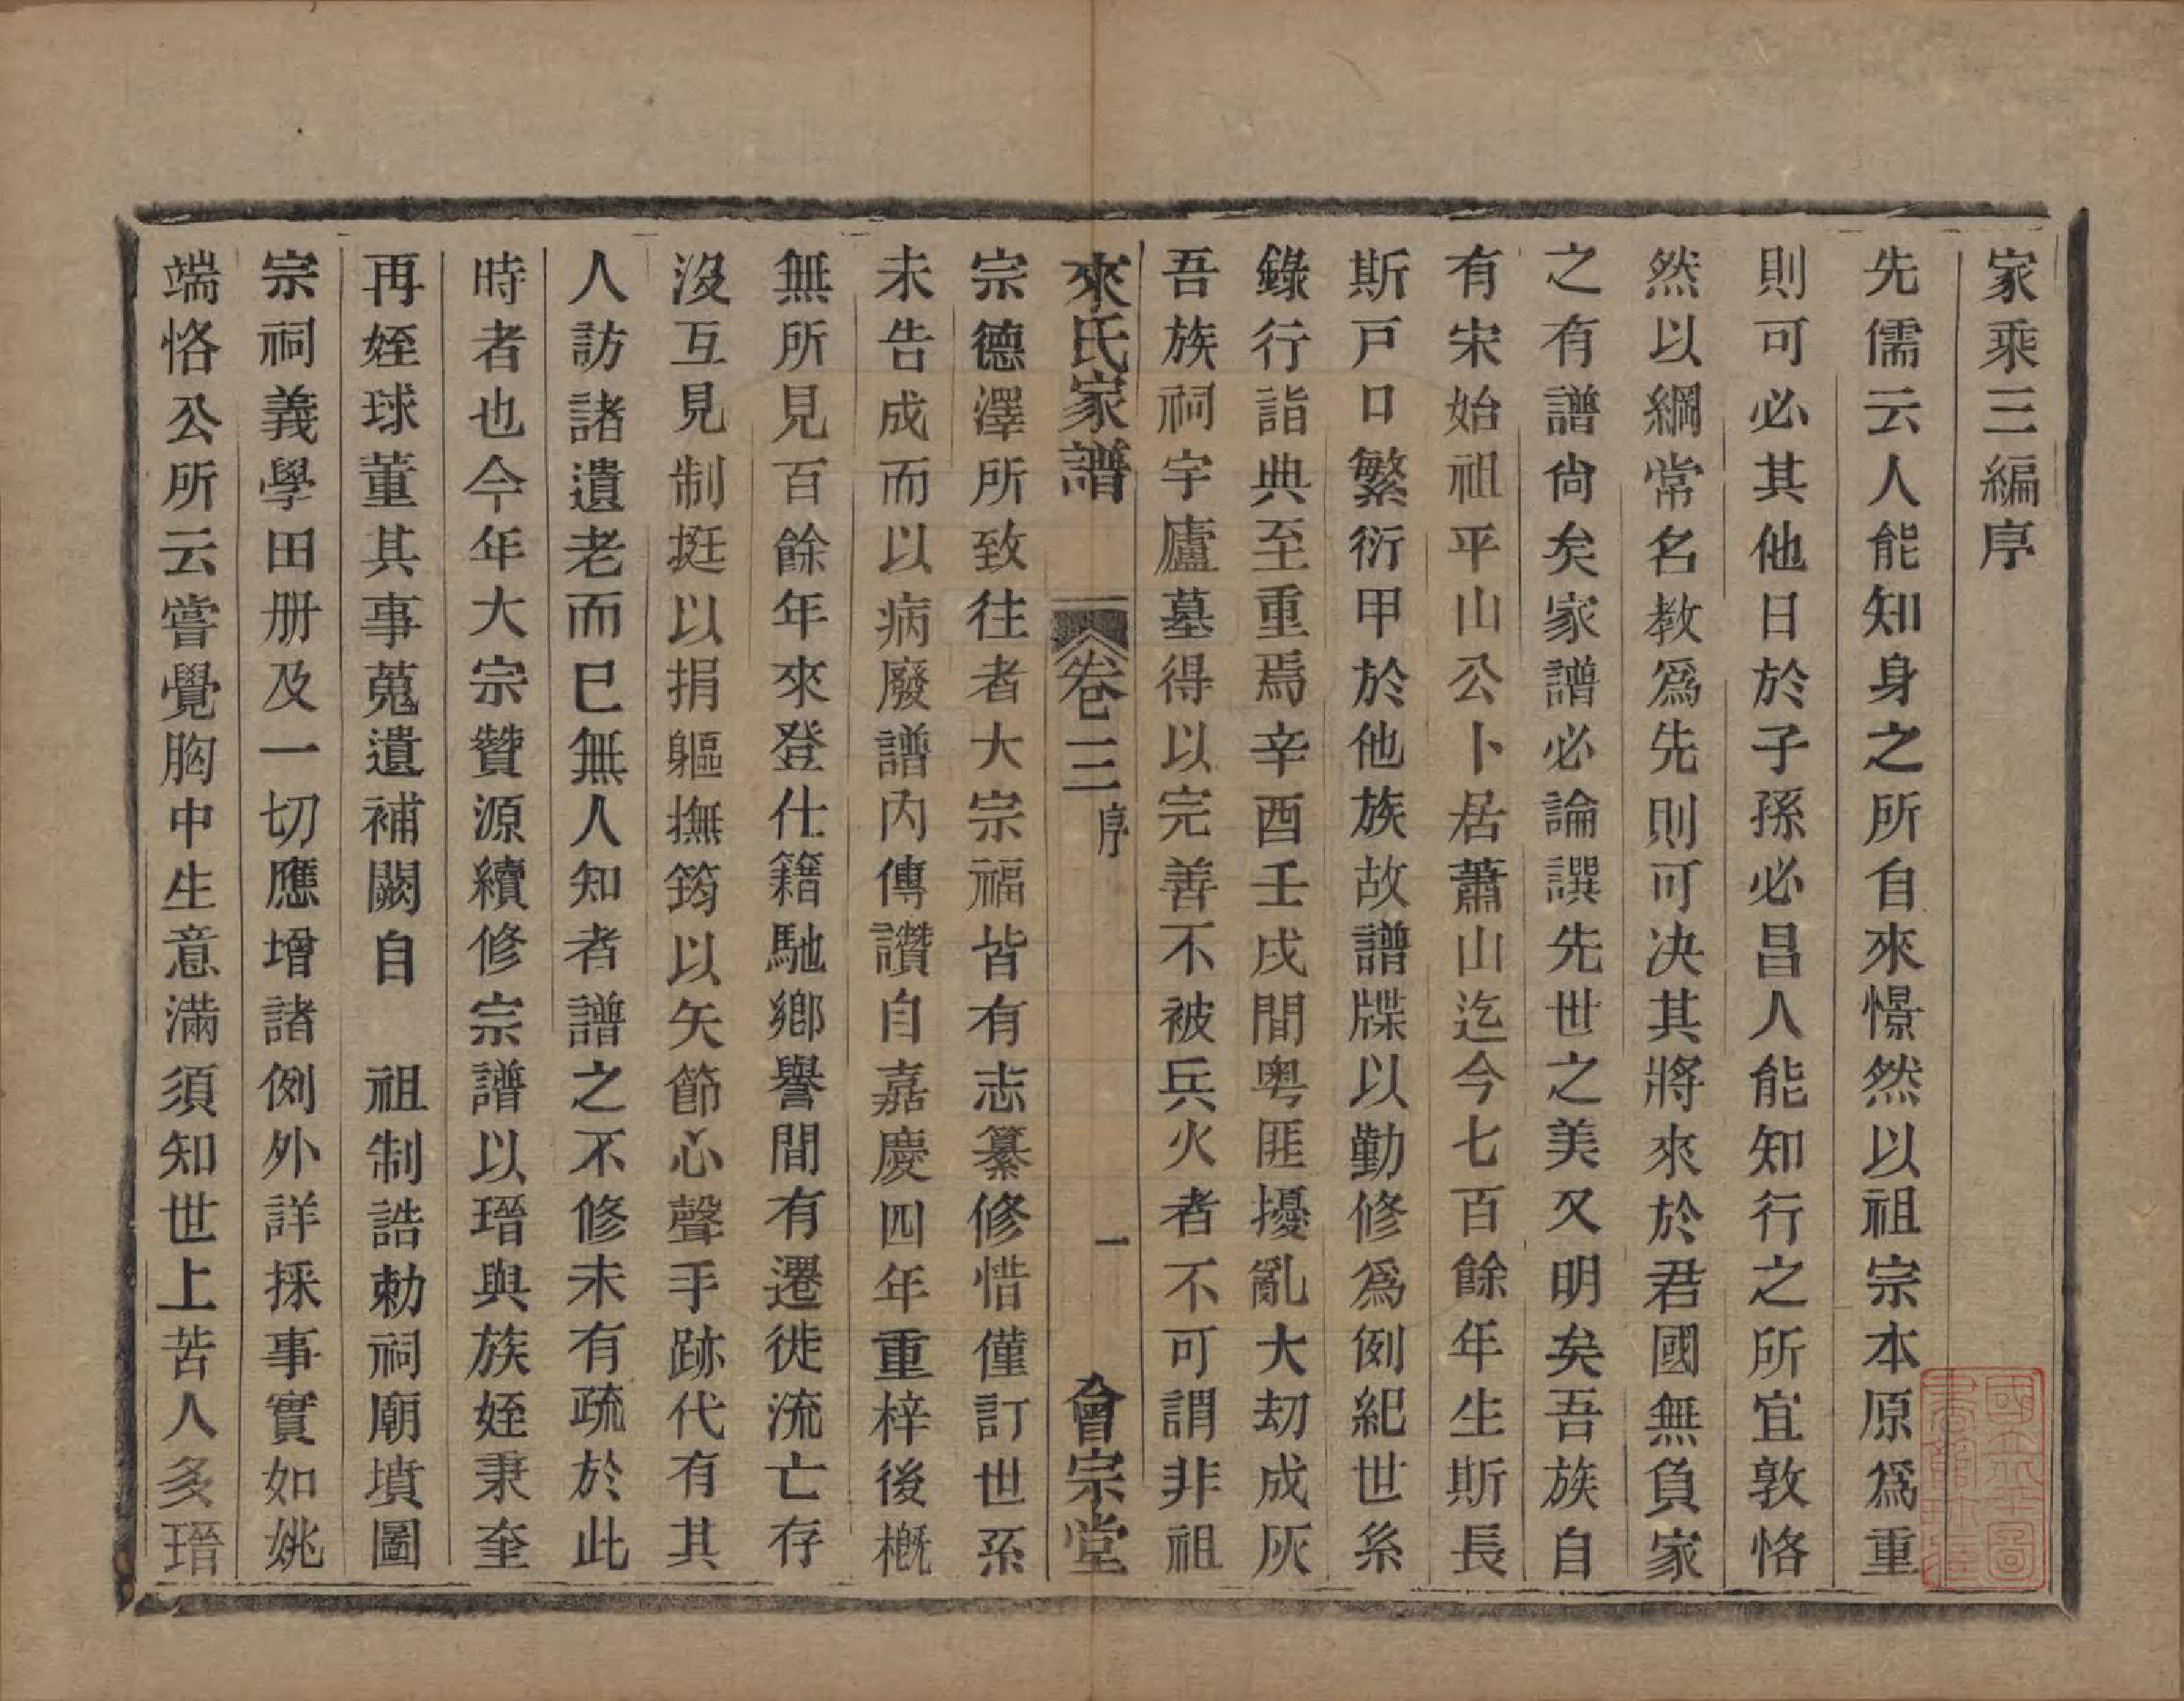 家乘三編序
先儒云人能知身之所自來憬然以祖宗本原爲重
則可必其他日於子孫必昌人能知行之所宜敦恪
然以綱常名教爲先則可决其將來於君國無負家
之有譜尙矣家譜必論譔先世之美又明矣吾族自
有宋始祖平山公卜居蕭山迄今七百餘年生斯長
斯戸口繁衍甲於他族故譜牒以勤修爲例紀世系
錄行詣典至重焉辛酉壬戌間粤匪擾亂大刧成灰
吾族祠宇廬墓得以完善不被兵火者不可謂非祖
來氏家譜 卷三 序 一 會宗堂
宗德澤所致往者大宗福皆有志纂修惜僅訂世系
未告成而以病廢譜内傳讚自嘉慶四年重梓後概
無所見百餘年來登仕籍馳鄉譽間有遷徙流亡存
沒互見制挺以捐軀撫筠以矢節心聲手跡代有其
人訪諸遺老而已無人知者譜之不修未有疏於此
時者也今年大宗贊源續修宗譜以瑨與族姪秉奎
再姪球董其事蒐遺補闕自 祖制誥勅祠廟墳圖
宗祠義學田册及一切應增諸例外詳採事實如姚
端恪公所云嘗覺胸中生意滿須知世上苦人多瑨